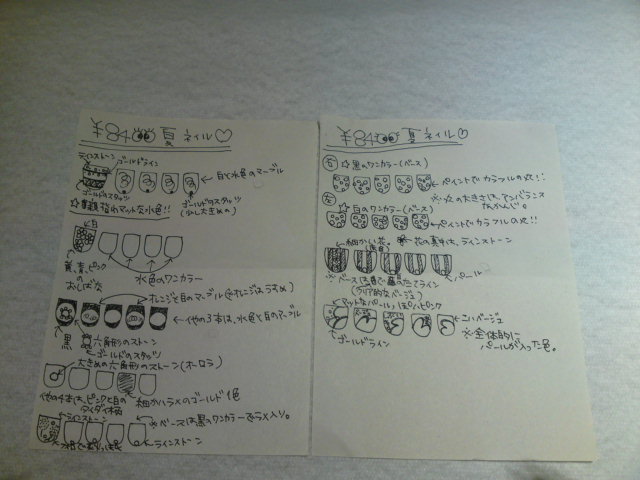 ¥8400 夏ネイル♡
ラインストーン
ゴールドライン
←白と水色のマーブル
ゴールドのスタッツ
ゴールドのスタッツ
(少し大きめ)
☆親指わマットな水色!!
白
黄、青、ピンク
のおしばな
水色のワンカラー
オレンジと白のマーブル(※オレンジはうすめ)
←他の3本は、水色と白のマーブル
黒
六角形のストーン
ゴールドのスタッツ
大きめの六角形のストーン(オーロラ)
他の4本は、ピンクと白の
タイダイ柄
細かいラメのゴールド1色
ラインストーン
※ベースは黒のワンカラーでラメ入り。
ラインストーン
¥8400 夏ネイル♡
右 ☆黒のワンカラー(ベース)
←ペイントでカラフルの丸!!
※丸の大きさは、アンバランス
なかんじ。
左 ☆白のワンカラー(ベース)
←ペイントでカラフルの丸!!
細かい花。
花の真中は、ラインストーン
パール
(クリア的なベージュ)
←こいベージュ
ゴールドライン
※全体的に
パールが入った色。